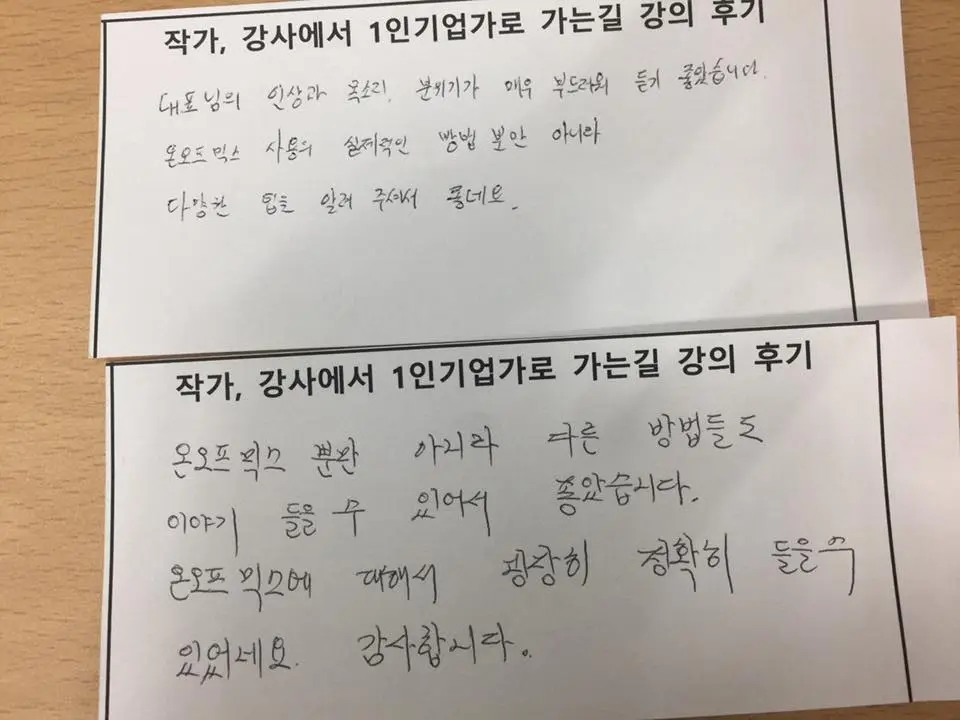 작가, 강사에서 1인기업가로 가는길 강의 후기
대표님의 인상과 목소리, 분위기가 매우 부드러워 듣기 좋았습니다.
온오프믹스 사용의 실제적인 방법 뿐안 아니라
다양한 팁을 알려 주셔서 좋네요.
작가, 강사에서 1인기업가로 가는길 강의 후기
온오프믹스 뿐만 아니라 다른 방법들도
이야기 들을 수 있어서 좋았습니다.
온오프믹스에 대해서 굉장히 정확히 들을 수
있었네요. 감사합니다.